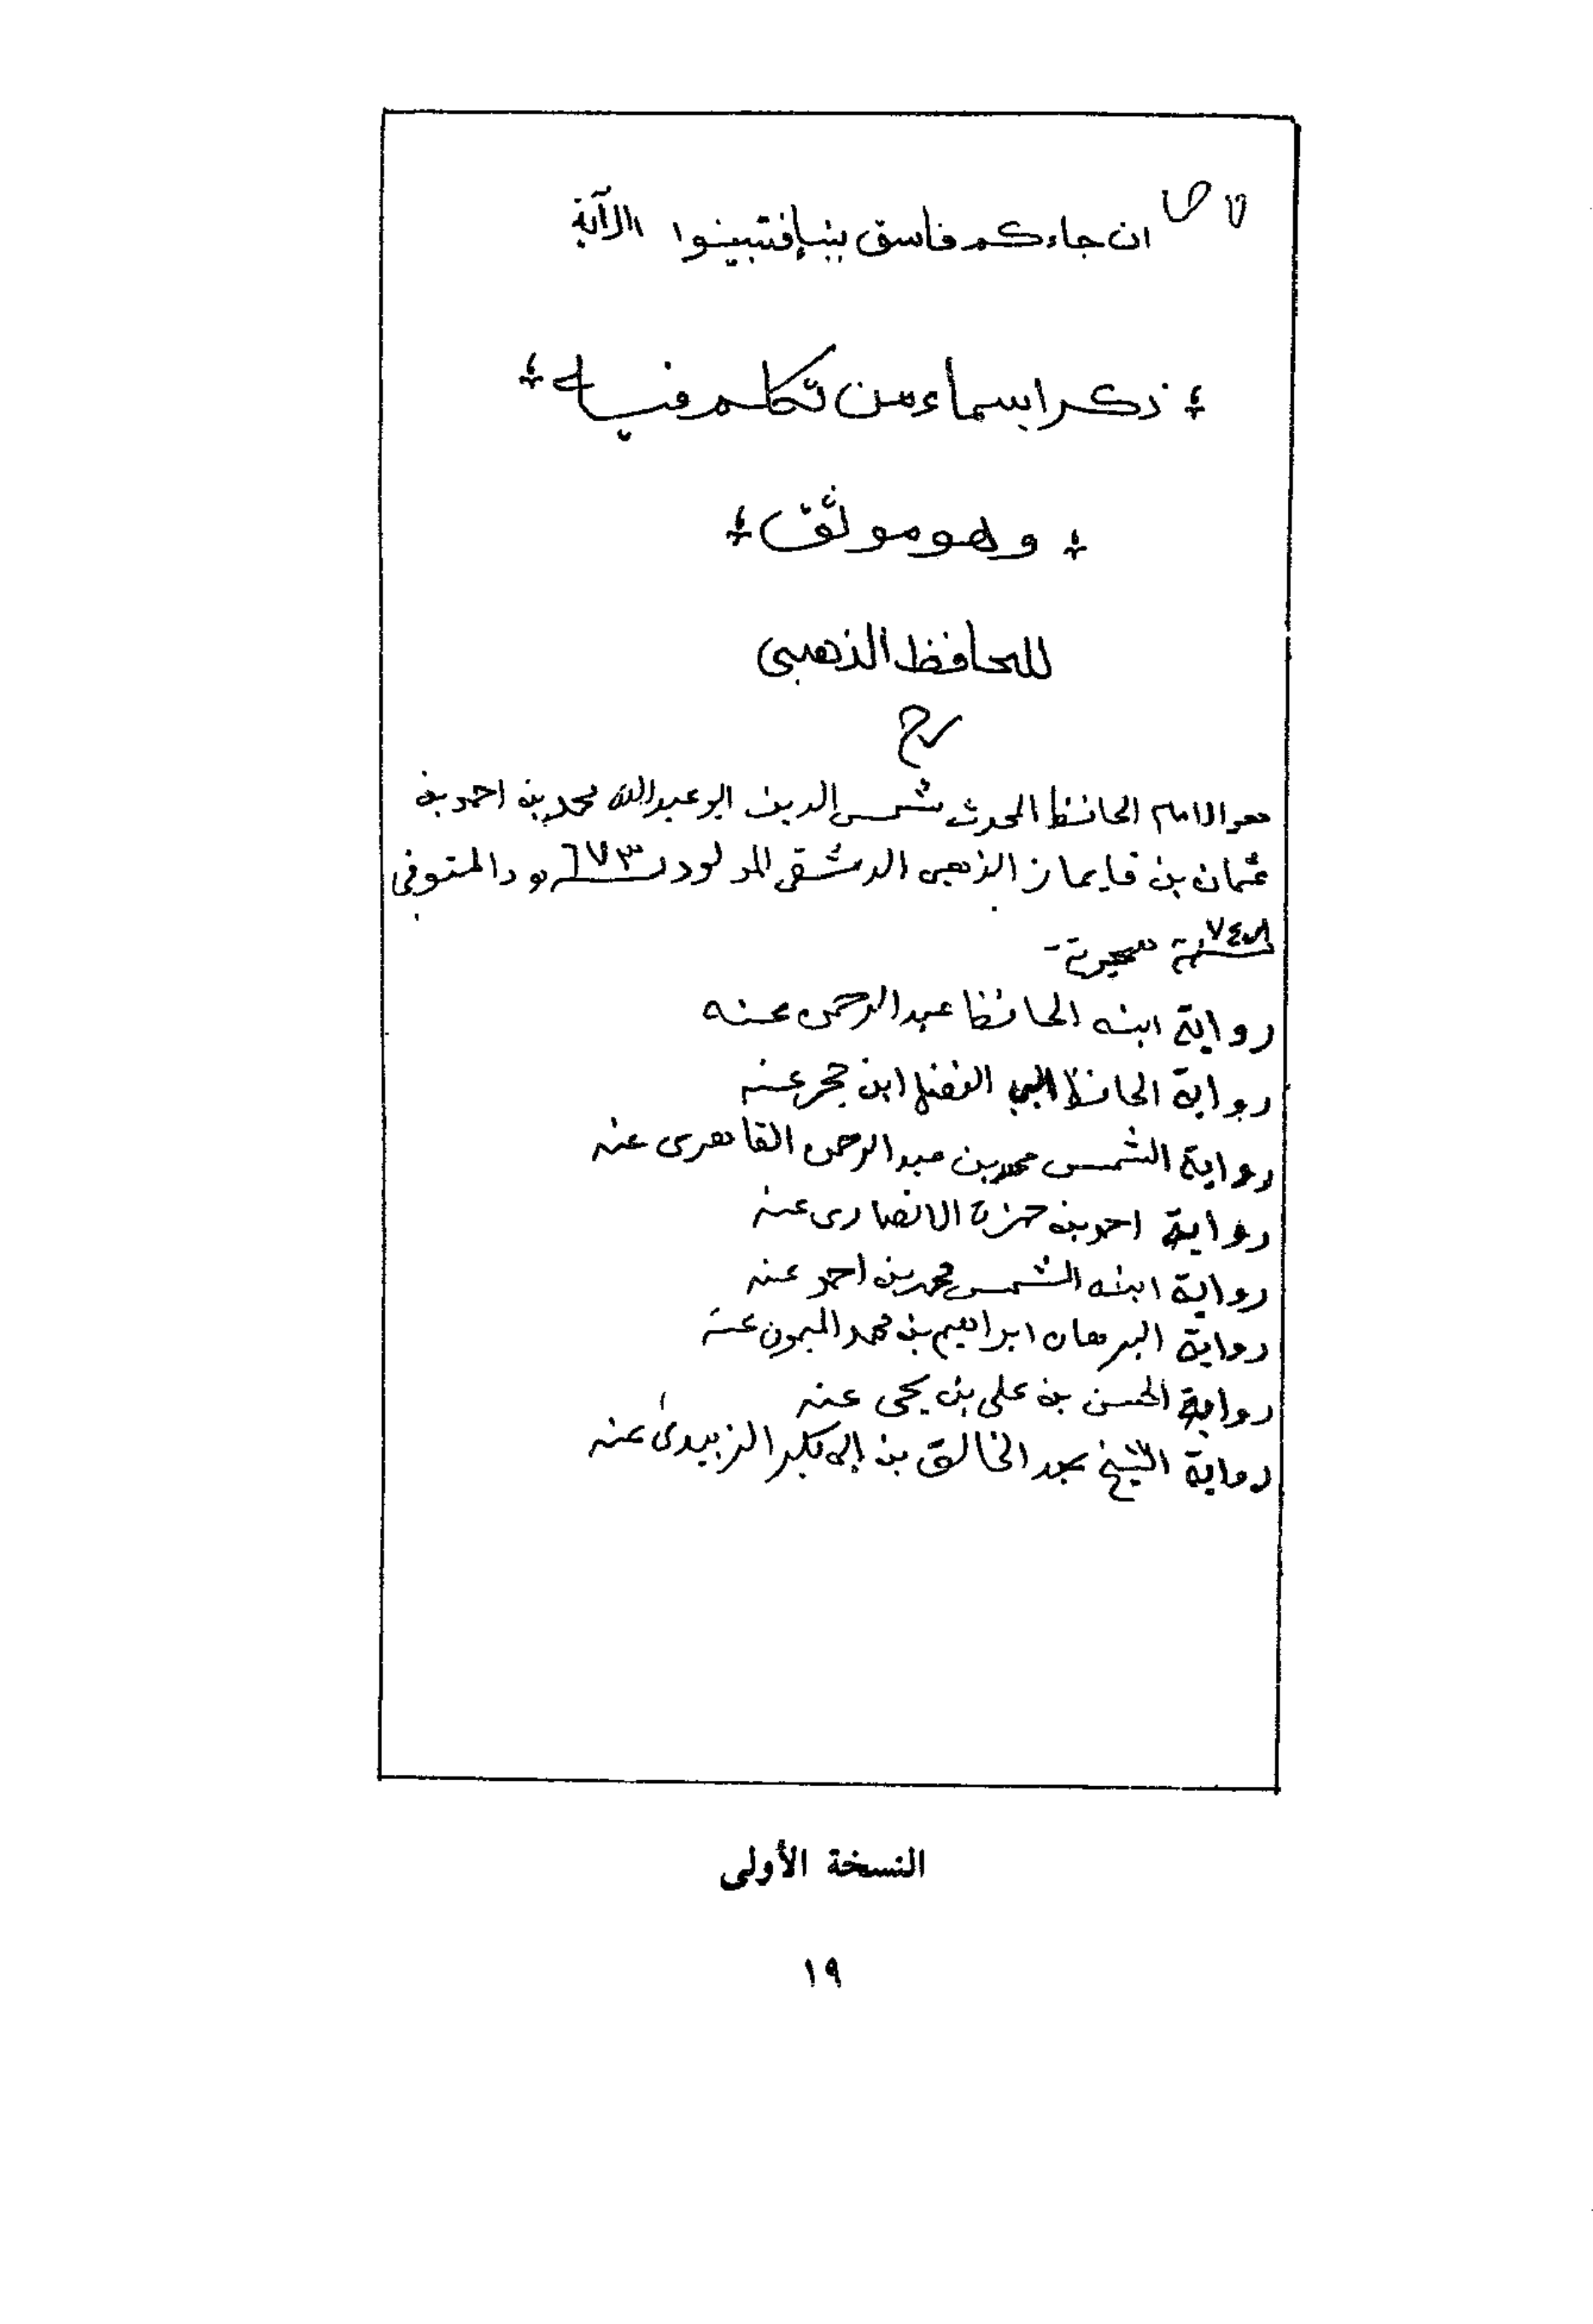 ان جاءكم فاسق بنبإ فتبينوا الآية
ذكر اسماء من تكلم فيه
وهو موثق
للحافظ الذهبي
رح
هو الامام الحافظ المحدث شمس الدين ابو عبدالله محمد بن احمد بن
عثمان بن قايماز الذهبى الدمشقى المولود سنة ٦٧٣ والمتوفى
سنة ٧٤٨ هجرية
رواية ابنه الحافظ عبدالرحمن عنه
رواية الحافظ ابي الفضل ابن حجر عنه
رواية الشمس محمد بن عبدالرحمن القاهرى عنه
رواية احمد بن حمزة الانصارى عنه
رواية ابنه الشمس محمد بن احمد عنه
رواية البرهان ابراهيم بن محمد الميمون عنه
رواية الحسن بن على بن يحى عنه
رواية الشيخ عبد الخالق بن ابى بكر الزبيدى عنه
النسخة الأولى
١٩